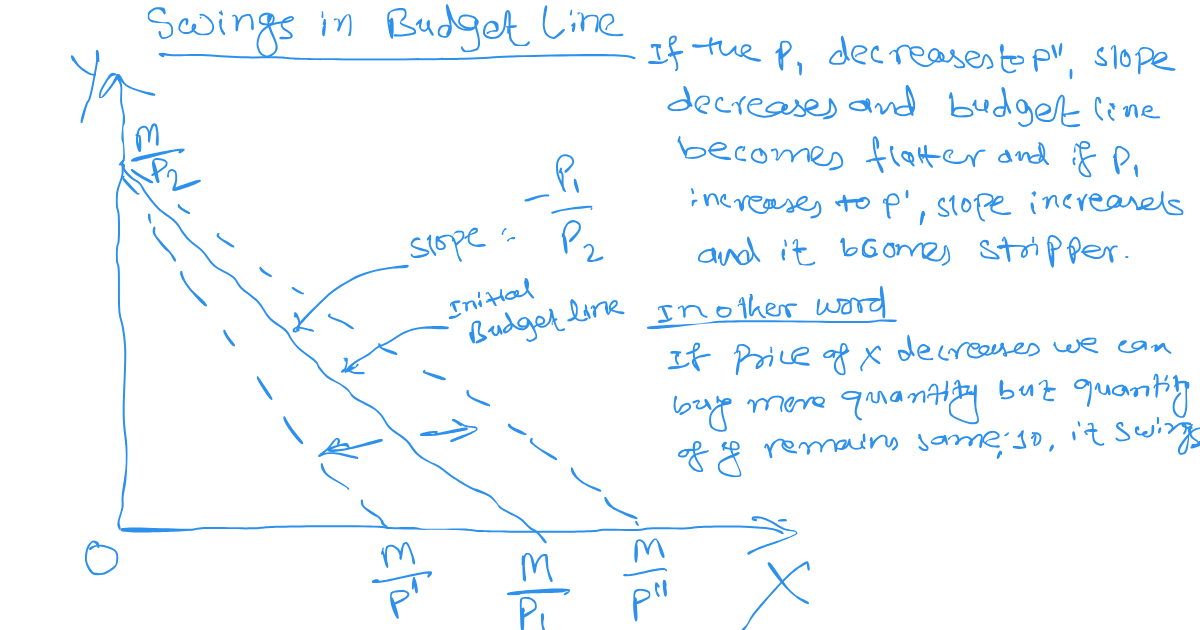 Swings in Budget Line
If the P1 decreases to P", slope
decreases and budget line
becomes flatter and if P1
increases to P', slope increases
and it bcomes stripper.
In other word
If Price of X decreases we can
buy more quantity but quantity
of y remains same, so, it swings
Y
M
P2
slope :-
- P1
P2
Initial
Budget line
O
M
P'
M
P1
M
P"
X